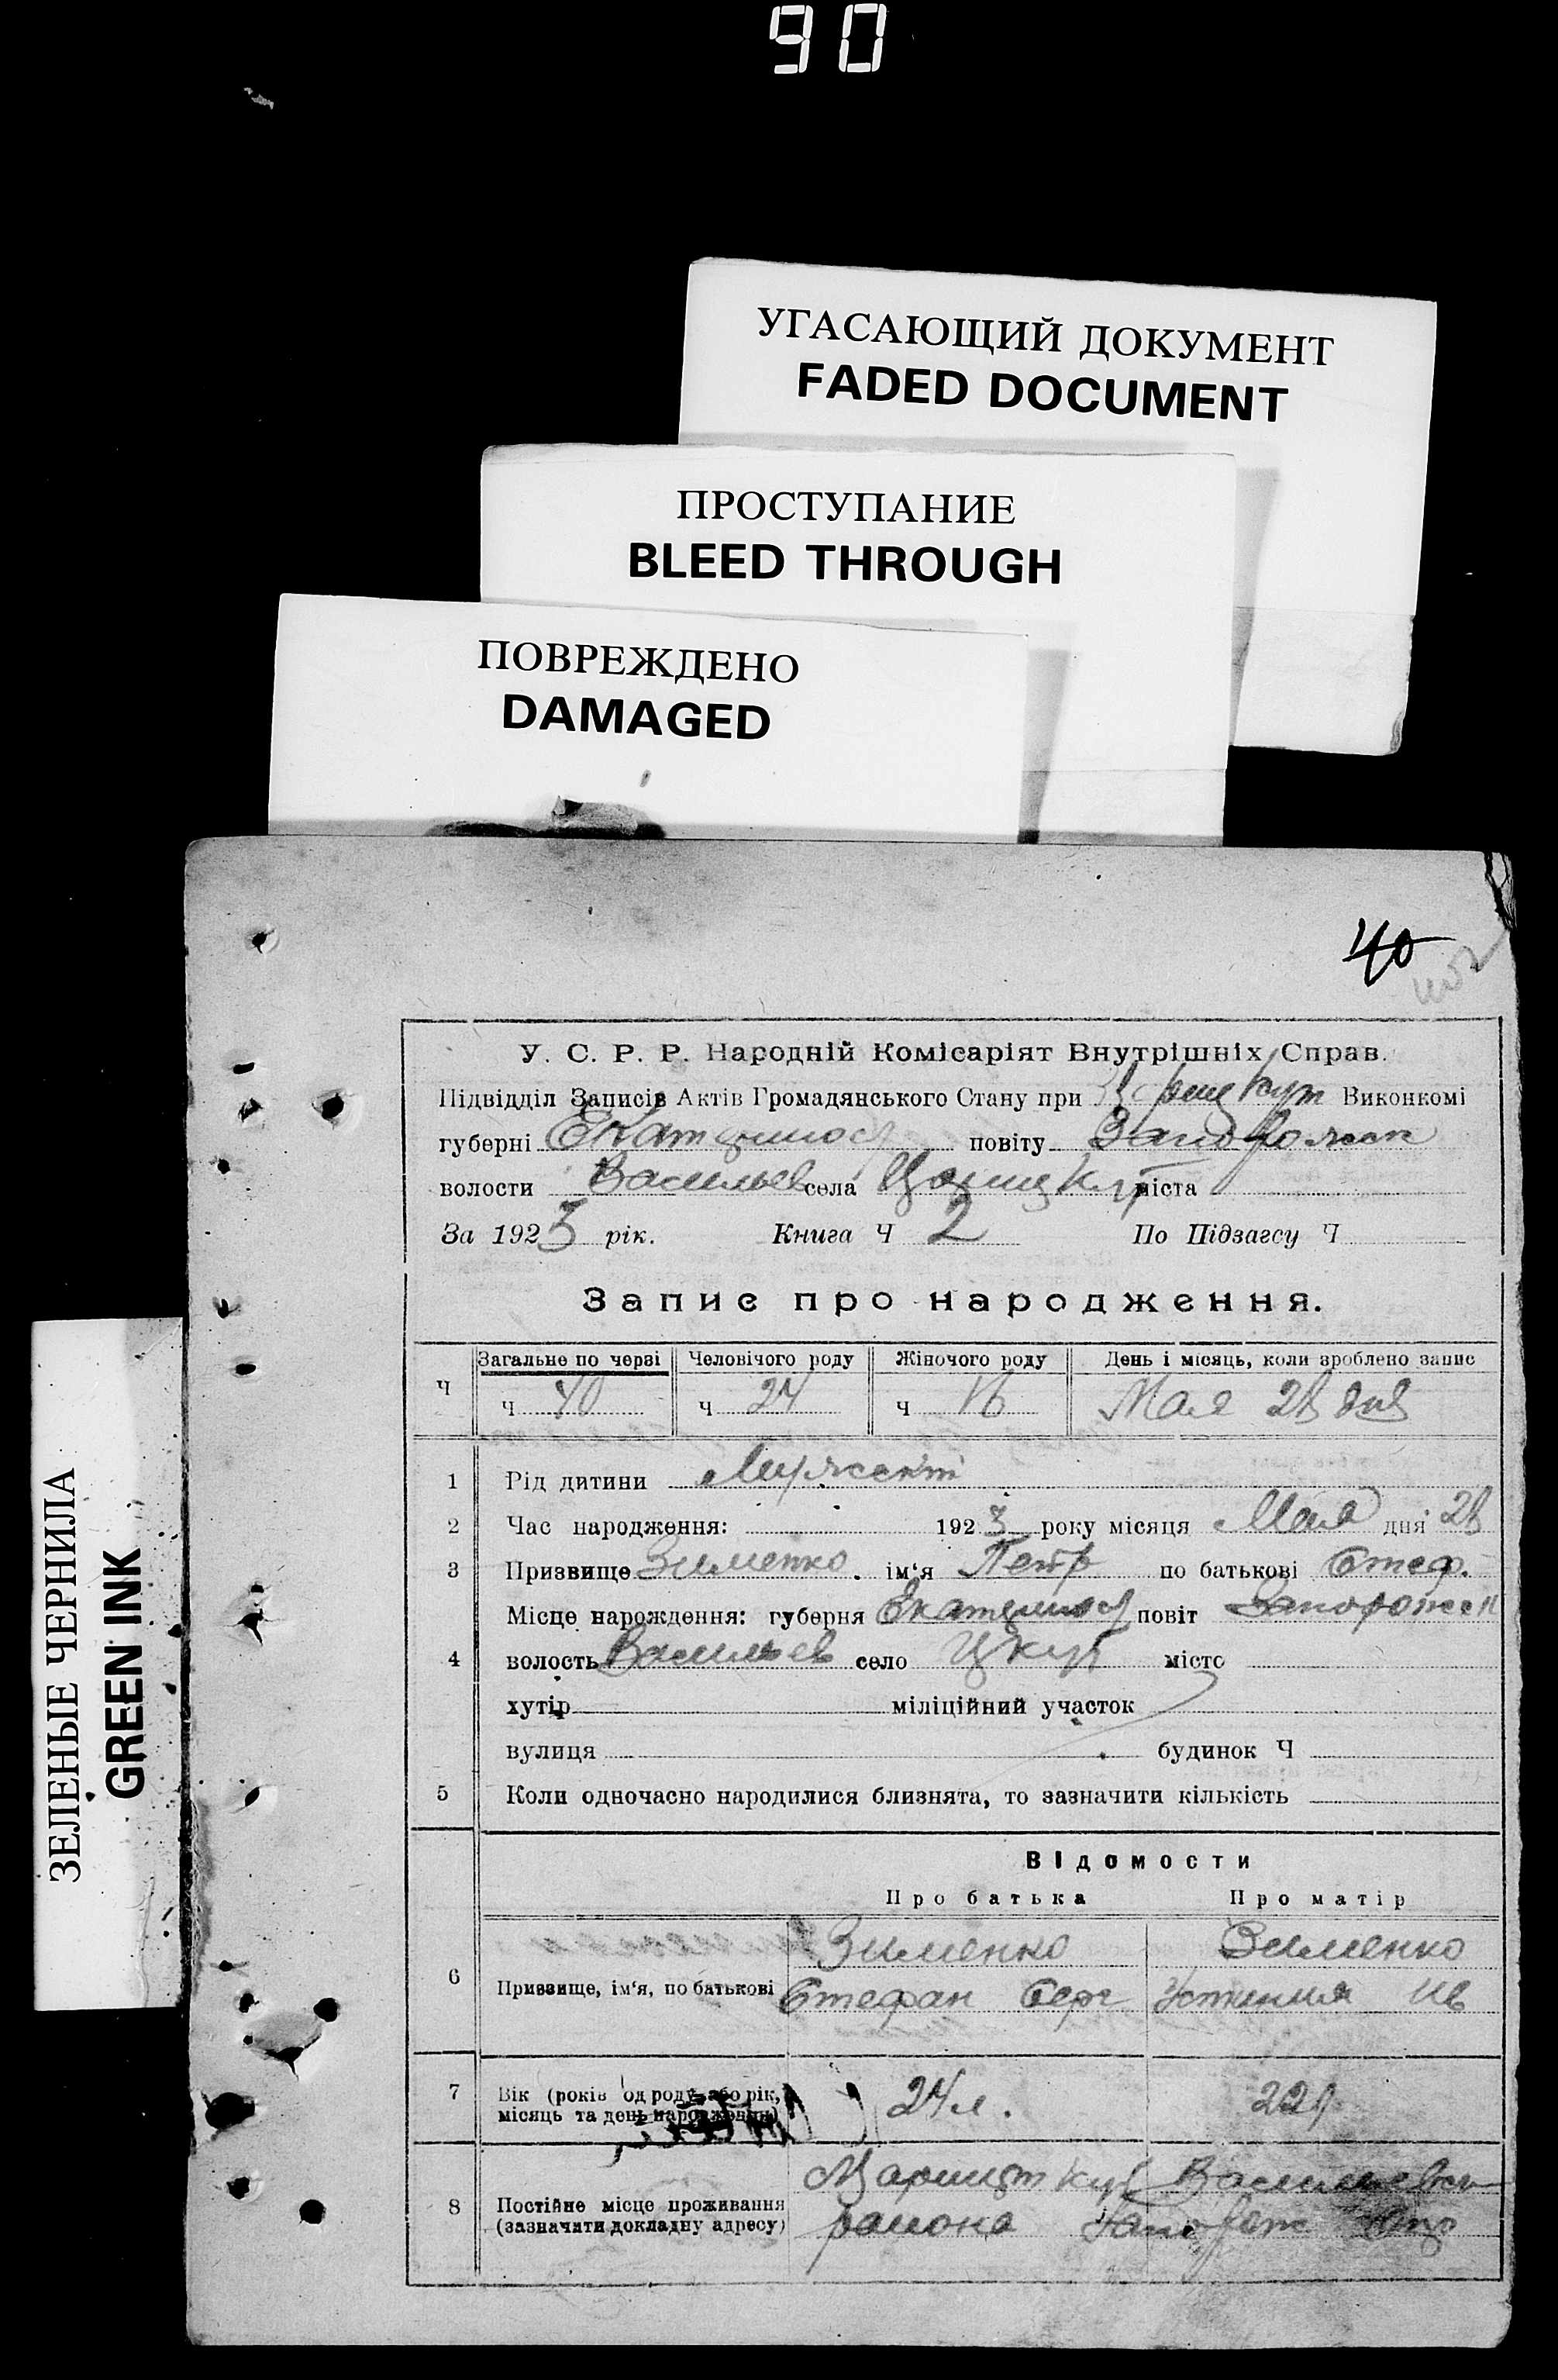 90
УГАСАЮЩИЙ ДОКУМЕНТ
FADED DOCUMENT
ПРОСТУПАНИЕ
BLEED THROUGH
ПОВРЕЖДЕНО
DAMAGED
ЗЕЛЕНЫЕ ЧЕРНИЛА
GREEN INK
40
У. С. Р. Р. Народній Комісаріят Внутрішніх Справ.
Підвідділ Записів Актів Громадянського Стану при Виконкомі
губерні Екатеринос повіту Запорожск
волости Васильев села міста
За 1923 рік. Книга Ч 2 По Підзагсу Ч
Запис про народження.
Загальне по черзі Человічого роду Жіночого роду День і місяць, коли зроблено запис
Ч ч 40 ч 24 ч 16 Мая 28 дня
1 Рід дитини Мужеск
2 Час народження: 1923 року місяця Мая дня 28
3 Призвище Зименко ім'я Петр по батькові Стеф.
Місце народження: губерня Екатеринос повіт Запорожск
4 волость Васильев село ЦКут місто
хутір міліційний участок
вулиця будинок Ч
5 Коли одночасно народилися близнята, то зазначити кількість
Відомости
Про батька Про матір
Зименко Зименко
6 Призвище, ім'я, по батькові Стефан Серг Устиния Ив
7 Вік (років од роду або рік, 24 л. 22 л
місяць та день народження)
Царицы Кут Васильевск
8 Постійне місце проживання
(зазначити докладну адресу) района Запорож